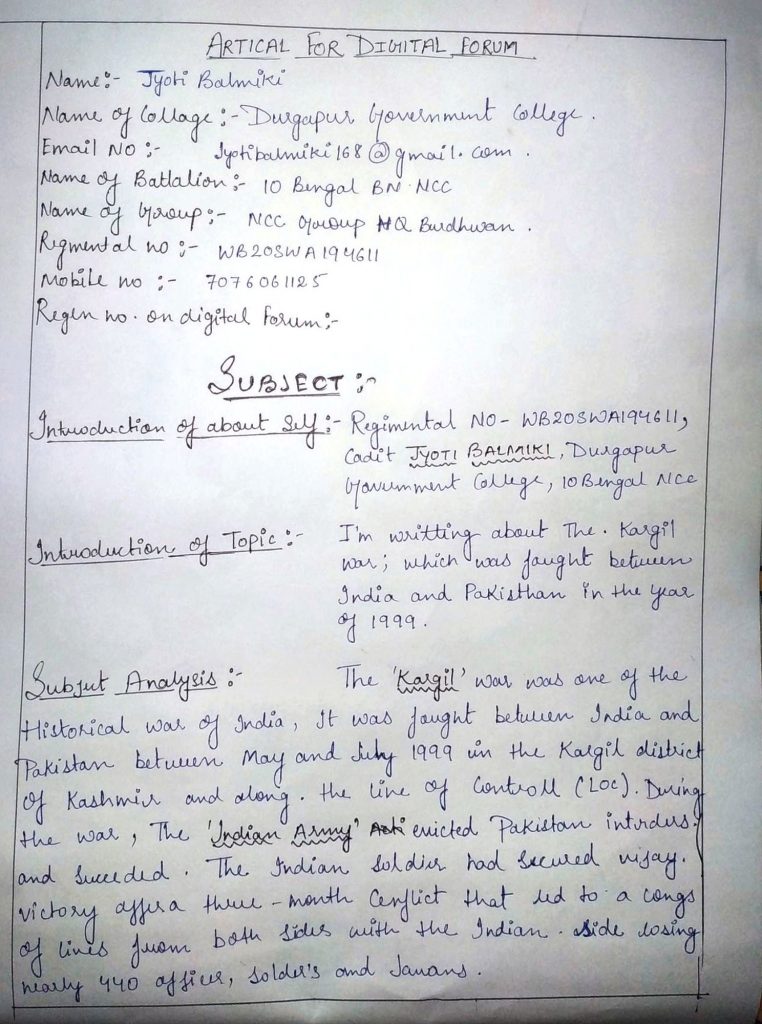 ARTICAL FOR DIGITAL FORUM
Name:- Jyoti Balmiki
Name of Collage :- Durgapur Government College .
Email NO :- Jyotibalmiki168@gmail.com .
Name of Batlalion:- 10 Bengal BN NCC
Name of Group:- NCC Group HQ Burdhwan .
Regmental no :- WB20SWA194611
Mobile no :- 7076061125
Regln no. on digital forum:-
SUBJECT :-
Introduction of about Self :- Regimental NO - WB20SWA194611,
Cadit JYOTI BALMIKI, Durgapur
Government College, 10 Bengal NCC
Introduction of Topic :- I'm writting about The . Kargil
war; which was faught between
India and Pakisthan in the year
of 1999 .
Subject Analysis :- The 'Kargil' war was one of the
Historical war of India, It was faught between India and
Pakistan between May and July 1999 in the Kargil district
of Kashmir and along . the line of Controll (LOC). During
the war , The 'Indian Army' evicted Pakistan intrders.
and Succeded . The Indian Soldier had Secured vijay.
victory after a three - month Conflict that led to a
of lives from both Sides with the Indian . side losing
nearly 440 officer, Solder's and Jawans .